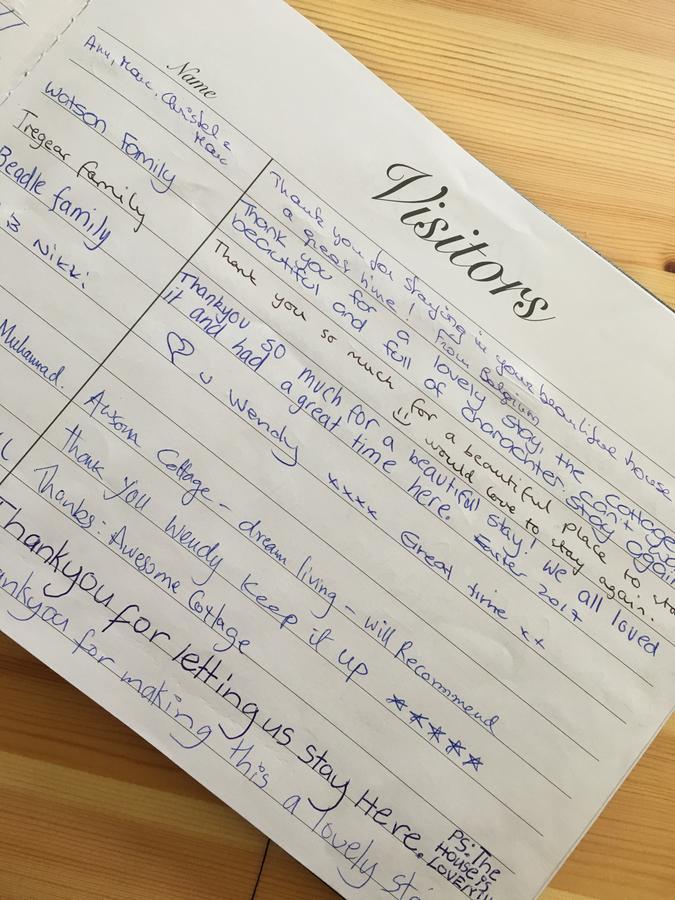 Name
Visitors
Ann, Marc, Christel &
Marc
Thank you for staying in your beautiful house
a great time! From Belgium
Watson Family
Thank you for a lovely stay, the cottage
beautiful and full of charachter. can't
stay again
Tregear family
Thank you so much for a beautiful place to
would love to stay again.
Beadle family
Thankyou so much for a beautiful stay! We all loved
it and had a great time here. Easter 2017
Nikki
♡ u Wendy xxxx Great time xx
Muhammad.
Awsom Cottage - dream living - will Recommend
thank you Wendy keep it up *****
Thanks: Awesome Cottage
Thankyou for letting us stay Here.
PS: The
House is
LOVELY!!
for making this a lovely